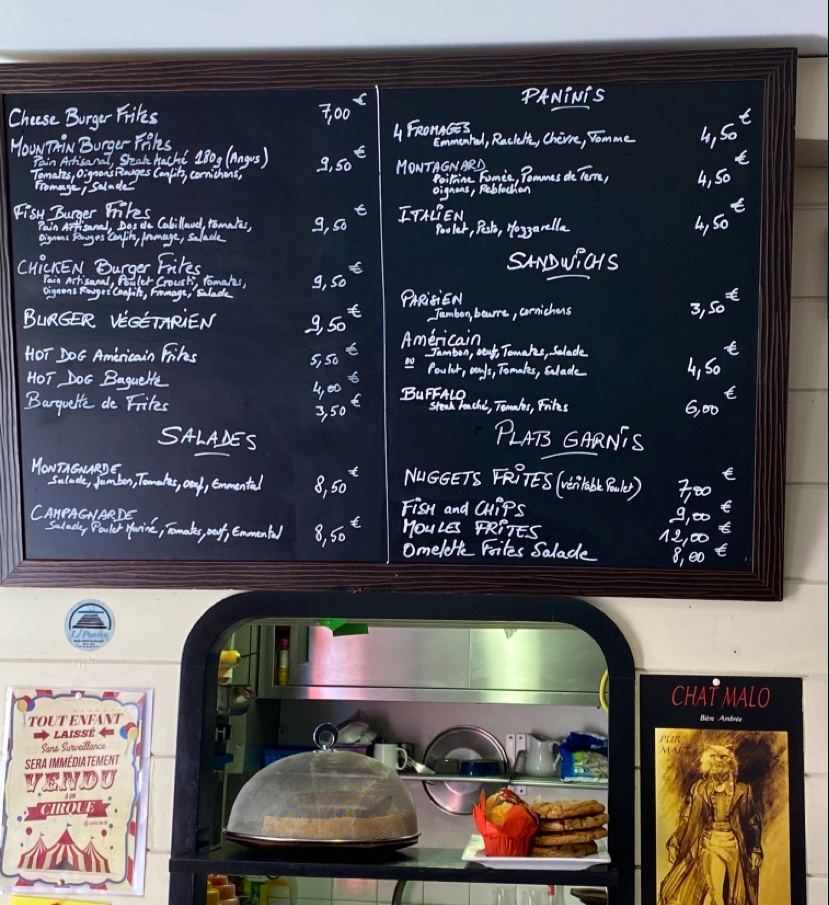 Cheese Burger Frites 7,00 €
MOUNTAIN Burger Frites
Pain Artisanal, Steak Haché 180g (Angus) 9,50 €
Tomates, Oignons Rouges Confits, cornichons,
Fromage, Salade
FISH Burger Frites
Pain Artisanal, Dos de Cabillaud, tomates, 9,50 €
Oignons Rouges Confits, fromage, salade
CHICKEN Burger Frites
Pain Artisanal, Poulet Crousti, tomates, 9,50 €
Oignons Rouges Confits, Fromage, Salade
BURGER VÉGÉTARIEN 9,50 €
HOT DOG Américain Frites 5,50 €
HOT DOG Baguette 4,00 €
Barquette de Frites 3,50 €
SALADES
MONTAGNARDE
Salade, Jambon, Tomates, oeuf, Emmental 8,50 €
CAMPAGNARDE
Salade, Poulet Mariné, Tomates, oeuf, Emmental 8,50 €
PANINIS
4 FROMAGES
Emmental, Raclette, Chèvre, Tomme 4,50 €
MONTAGNARD
Poitrine Fumée, Pommes de Terre, 4,50 €
Oignons, Reblochon
ITALIEN
Poulet, Pesto, Mozzarella 4,50 €
SANDWICHS
PARISIEN
Jambon, beurre, cornichons 3,50 €
Américain
Jambon, oeuf, Tomates, Salade
ou Poulet, oeufs, Tomates, Salade 4,50 €
BUFFALO
Steak haché, Tomates, Frites 6,00 €
PLATS GARNIS
NUGGETS FRITES (véritable Poulet) 7,00 €
FISH and CHIPS 9,00 €
MOULES FRITES 12,00 €
Omelette Frites Salade 8,00 €
Le Ponton
TOUT ENFANT
LAISSÉ
Sans Surveillance
SERA IMMÉDIATEMENT
VENDU
À UN
CIRQUE
CHAT MALO
Bière Ambrée
PUR
MALT